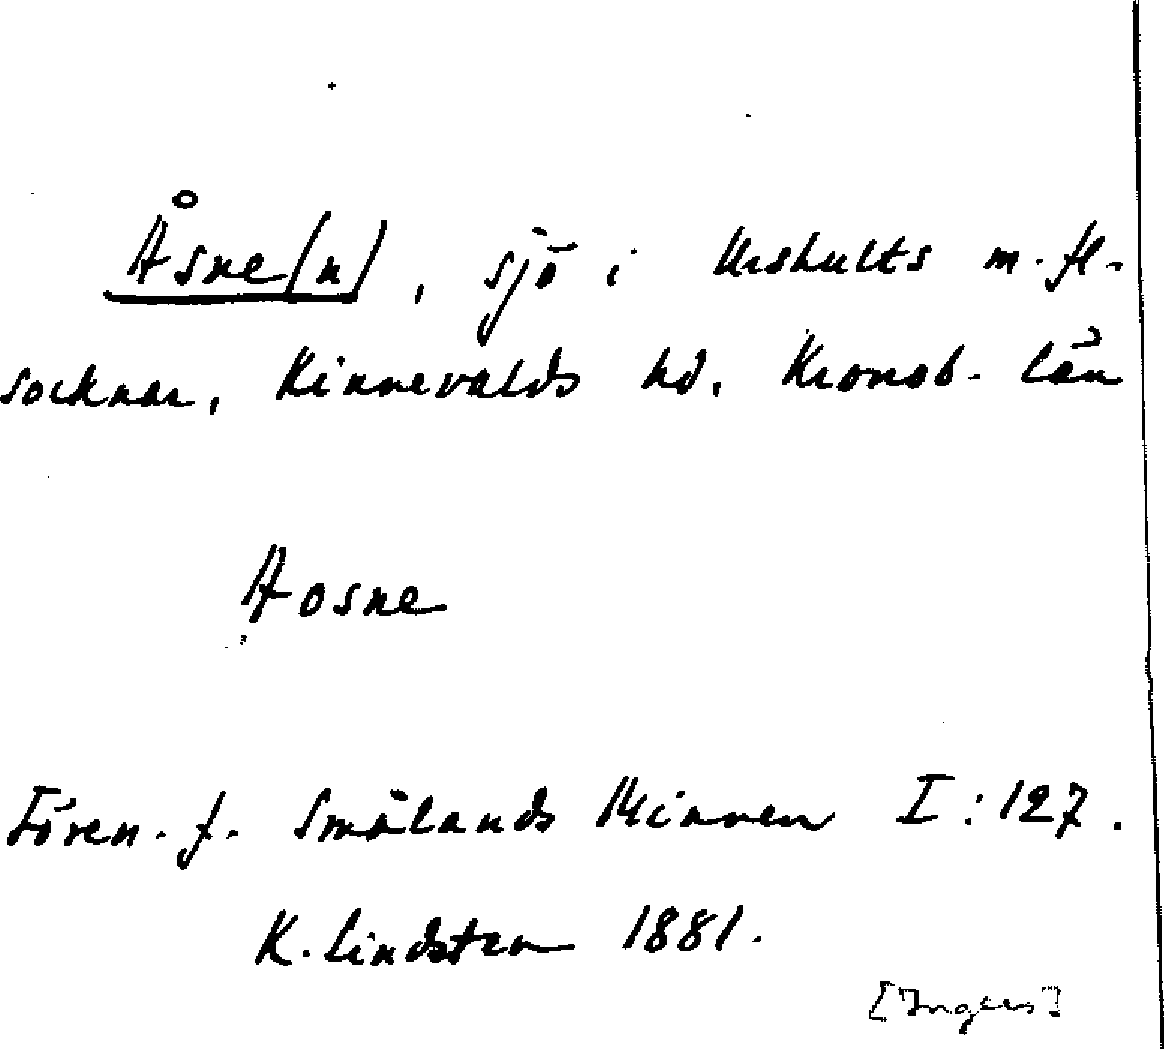 Åsne(n), sjö i Urshults m. fl.
socknar, Kinnevalds hd, Kronob. län
Aosne
Fören. f. Smålands Minnen I:127.
K. Lindsten 1881.
[Ingers]